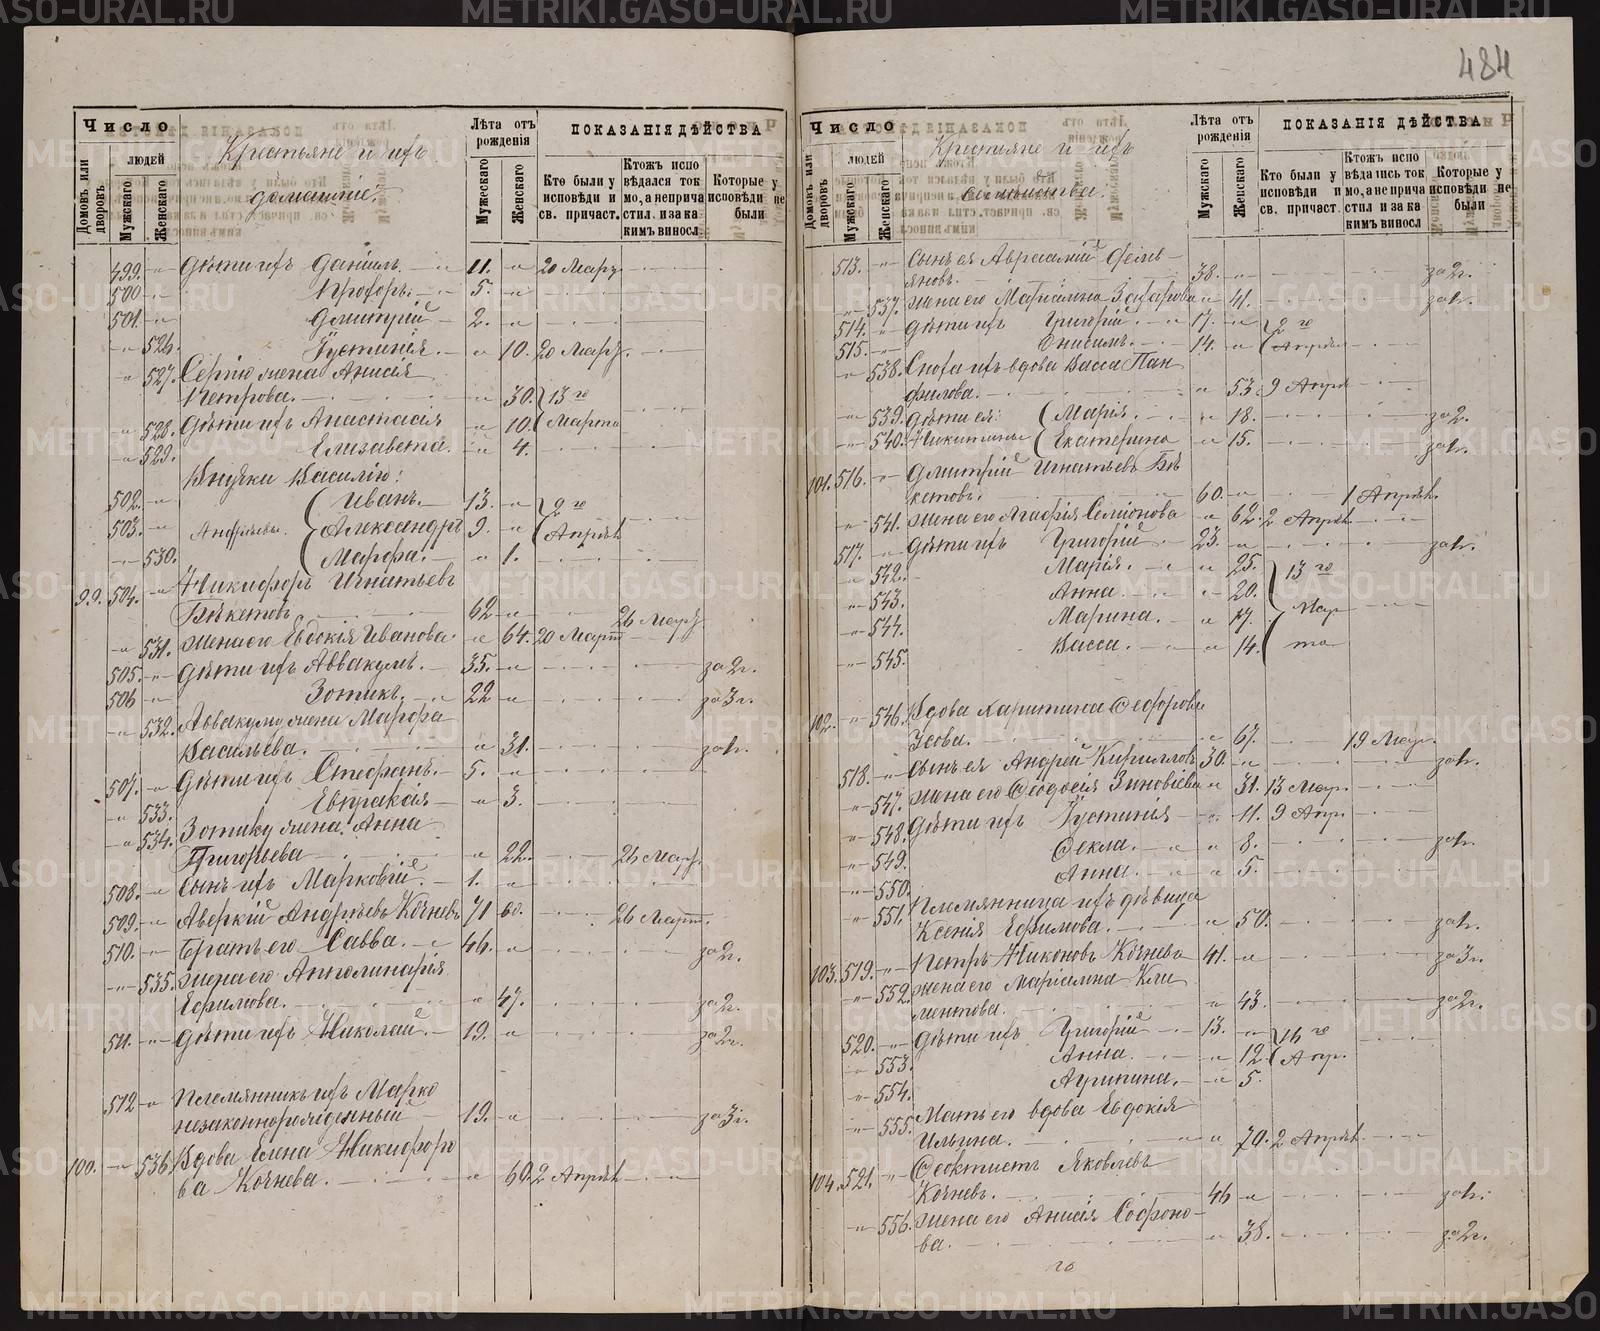 484
Число
Домовъ или дворовъ
людей
Мужскаго
Женскаго
Крестьяне и ихъ
домашніе.
Лѣта отъ рожденія
Мужескаго
Женскаго
ПОКАЗАНІЯ ДѢЙСТВА
Кто были у исповѣди и св. причаст.
Ктожъ испо вѣдался ток мо, а не прича стил. и за ка кимъ виносл.
Которые у исповѣди не были
499. Дѣти ихъ Даніилъ. 11. 20 Мар.
500 Прохоръ. 5.
501. Дмитрій 2.
526. Іустинія. 10. 20 Мар.
527. Сергію жена Анисія
Петрова. 30. 13 го
528. Дѣти ихъ Анастасія 10. Марта
529. Елизавета. 4.
Внуки Василію:
502. Иванъ. 13. 2 го
503. Андреевы. Александръ 9. Апрѣл
530. Марфа. 1.
99. 504. Никифоръ Игнатьевъ
Бѣкетовъ 62 26 Мар.
531. Жена его Евдокія Иванова 64. 20 Март
505. Дѣти ихъ Аввакумъ. 35. за 2г.
506 Зотикъ. 22 за 3г.
532. Аввакуму жена Марфа
Васильева. 31. за 1г.
507. Дѣти ихъ Стефанъ. 5.
533. Евпраксія 3.
534. Зотику жена Анна
Григорьева 22. 26 Мар.
508. Сынъ ихъ Марковій. 1.
509. Аверкій Андрѣевъ Кочневъ 71 60. 26 Март.
510. Братъ его Савва. 46. за 2г.
535. Жена его Апполинарія
Ефимова. 47. за 2г.
511. Дѣти ихъ Николай. 19. за 2г.
512 Племянникъ ихъ Марко
незаконнорожденный 19. за 3г.
100. 536. Вдова Елена Никифоро
ва Кочнева. 69. 2 Апрѣл
Число
Домовъ или дворовъ
людей
Мужскаго
Женскаго
Крестьяне и ихъ
семейства.
Лѣта отъ рожденія
Мужскаго
Женскаго
ПОКАЗАНІЯ ДѢЙСТВА
Кто были у исповѣди и св. причаст.
Ктожъ испо вѣдались ток мо, а не прича стил и за ка кимъ виносл
Которые у исповѣди не были
513. Сынъ ея Аврамій
яновъ. 38. за 2г.
537. Жена его Маріамна Захарова 41. за 1г.
514. Дѣти ихъ Григорій. 17. 2 го
515. Онисимъ. 14. Апрѣля
538. Сноха ихъ вдова Васса Пан
филова. 53. 9 Апрѣл
539. Дѣти ея: Марія. 18. за 2.
540. Никитины Екатерина 15. за 1г.
101. 516. Дмитрій Игнатьевъ Бѣ
кетовъ. 60. 1 Апрѣл.
541. Жена его Агафія Семіонова 62. 2 Апрѣл
517. Дѣти ихъ Григорій 23. за 1г.
542. Марія. 25. 13 го
543. Анна. 20.
544. Марина. 17. Мар
545. Васса. 14. та
102. 546. Вдова Харитина Феофорова
Усова. 67. 19 Мар.
518. Сынъ ея Андрей Кирилловъ 30. за 1г.
547. Жена его Феодосія Зиновіева 31. 13 Мар.
548. Дѣти ихъ Іустинія 11. 9 Апр.
549. Фекла. 8. за 1г.
550. Анна. 5.
551. Племянница ихъ дѣвица
Ксенія Ефимова. 50. за 1г.
103. 519. Петръ Никоновъ Кочневъ 41. за 3г.
552. Жена его Маріамна Кли
ментова. 43. за 2г.
520. Дѣти ихъ Григорій 13. 16 го
553. Анна. 12. Апр.
554. Агрипина. 5.
555. Мать его вдова Евдокія
Ильина. 70. 2 Апрѣл.
104. 521. Феоктистъ Яковлевъ
Кочневъ. 46 за 1г.
556. Жена его Анисія Софроно-
ва. 38. за 2г.
METRIKI.GASO-URAL.RU